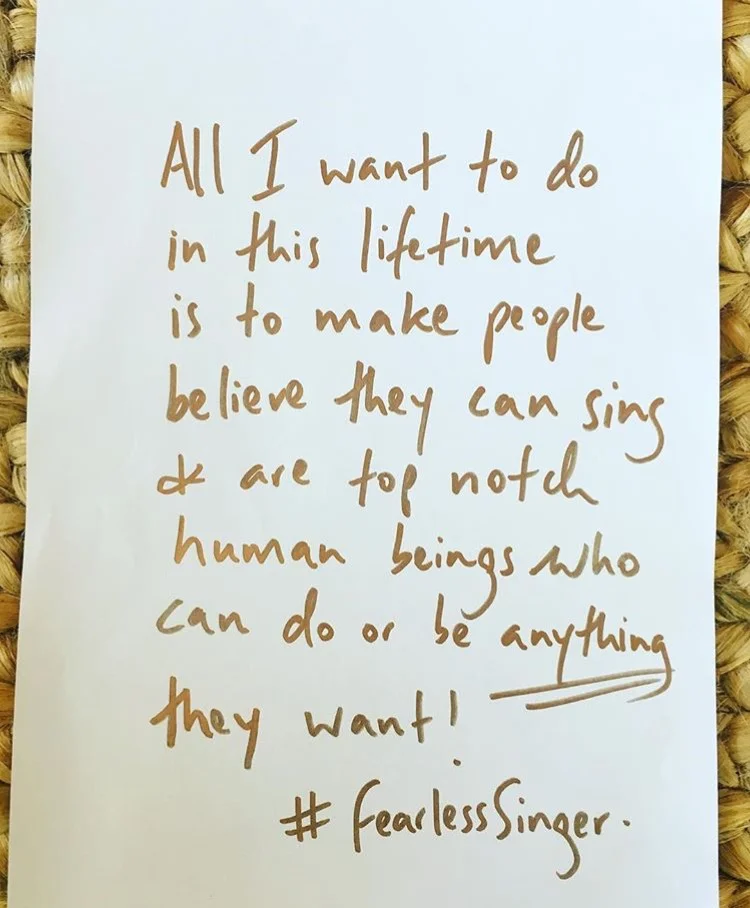 All I want to do
in this lifetime
is to make people
believe they can sing
& are top notch
human beings who
can do or be anything
they want!
#fearlessSinger.